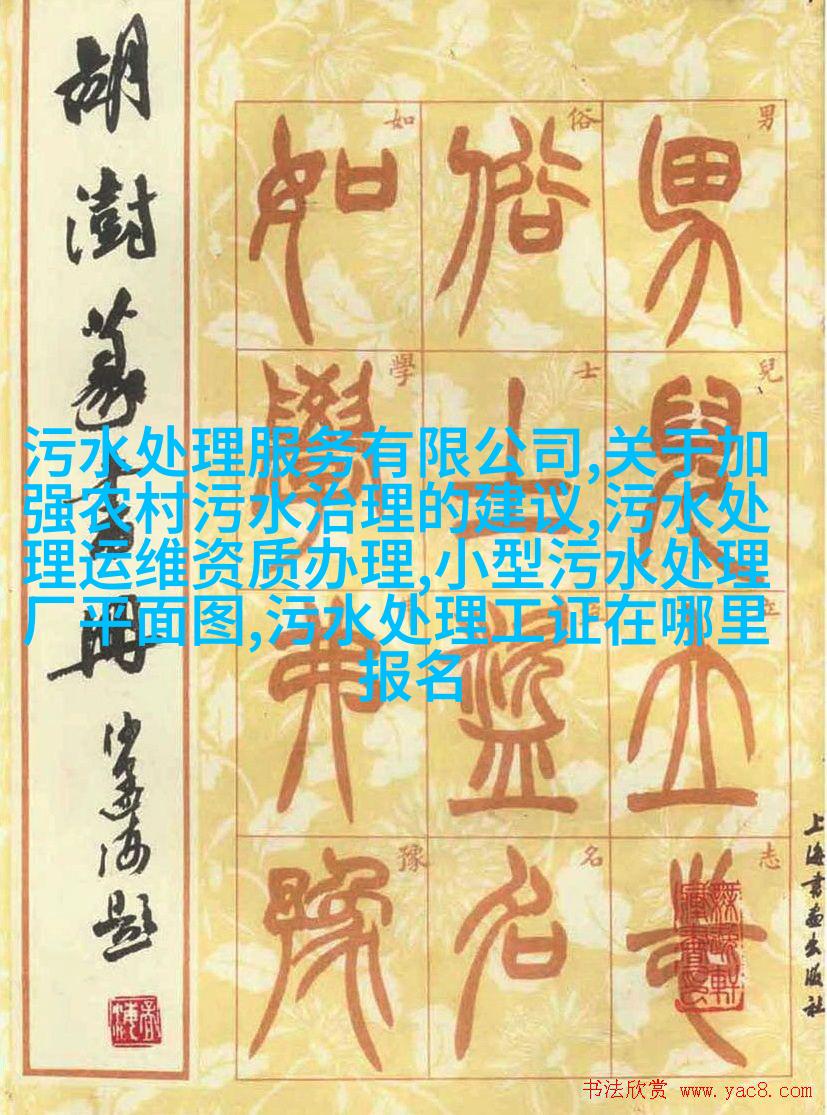 胡澍篆书册
沙孟海题
男
俗
如
男俗如
兒
士
學
兒士學
立
盜
弗
志
名
豫
志名豫
上海书画出版社
污水处理服务有限公司,关于加
强农村污水治理的建议,污水处
理运维资质办理,小型污水处理
厂平面图,污水处理工证在哪里
报名
书法欣赏 www.yac8.com